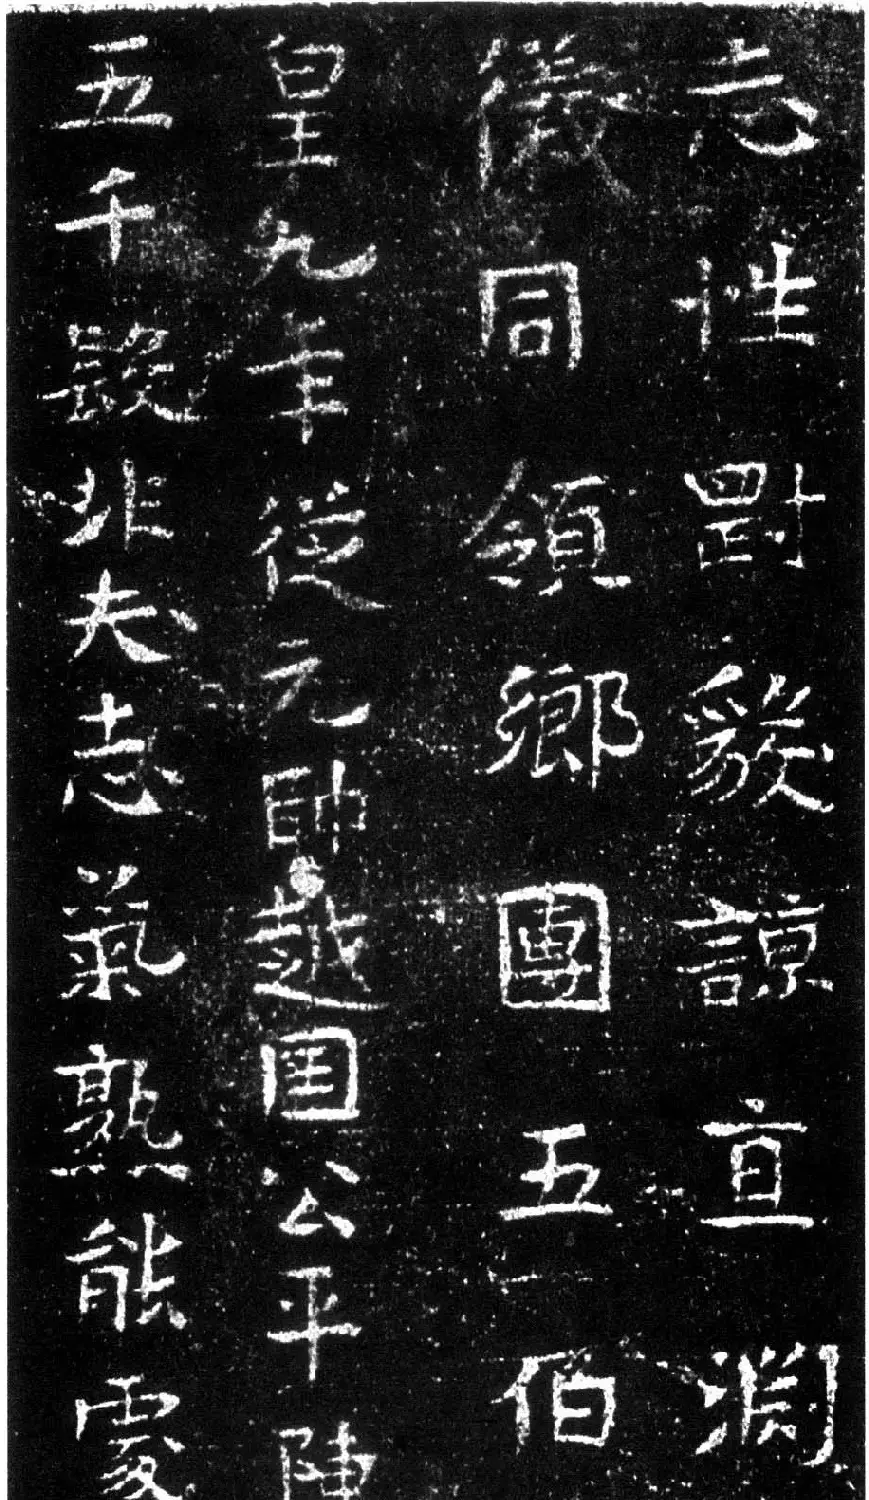 志性剛毅諒亘淵
儀同領鄉團五伯
皇九年從元帥越國公平陳
五千段非夫志氣熟能處